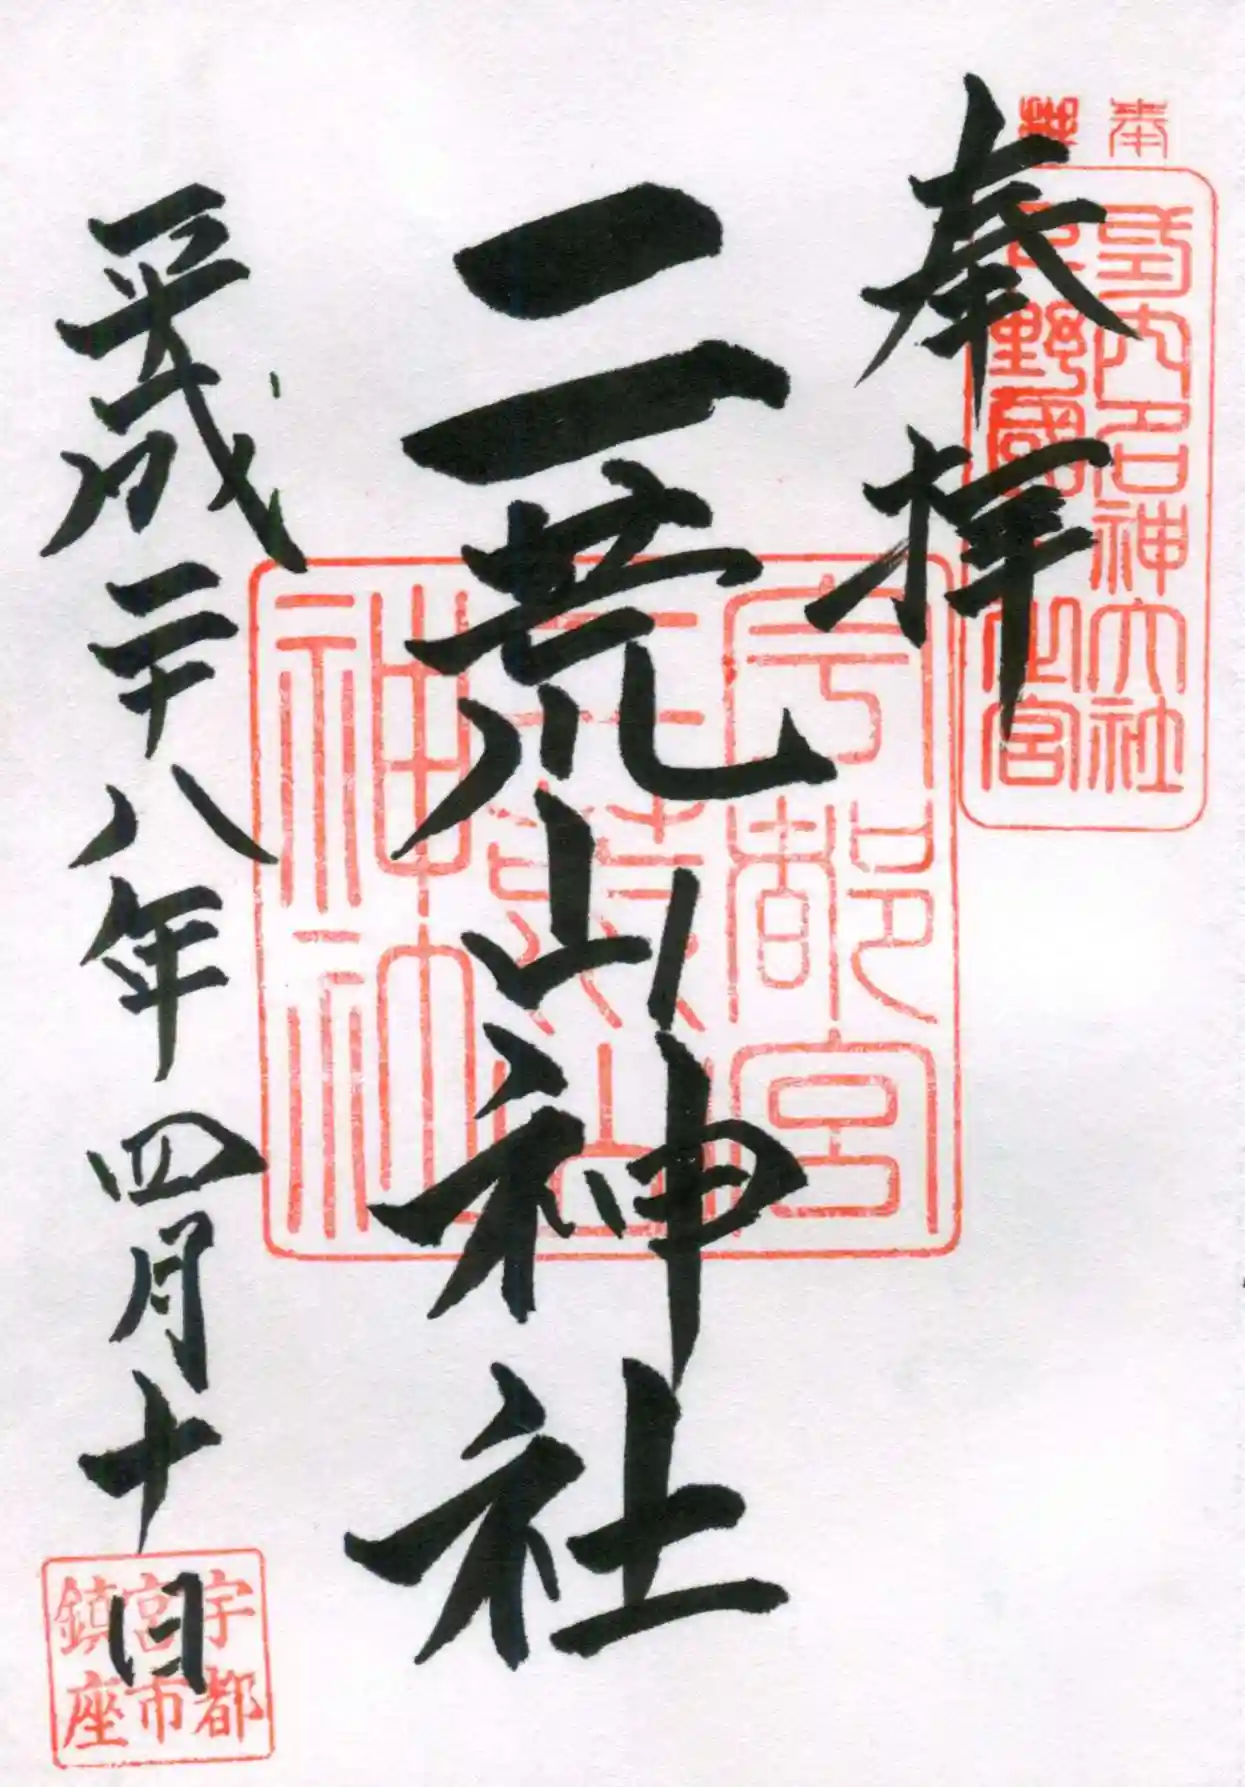 奉拝
二荒山神社
平成二十八年四月十日
奉拝
式内名神大社
下野國一之宮
宇都宮
二荒山
神社
宇都
宮市
鎮座